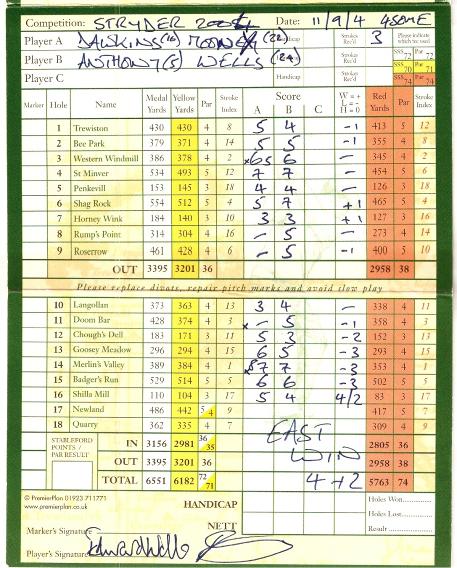 Competition: STRYDER 2004 Date: 11/9/4 4SOME
Player A DAWKINS (16) MOONEY (22) Handicap Strokes Rec'd 3 Please indicate which tee used
Player B ANTHONY (5) WELLS (24) Handicap Strokes Rec'd SSS 72 Par 72 SSS 70 Par 71
Player C Handicap Strokes Rec'd SSS 74 Par 74
Marker Hole Name Medal Yards Yellow Yards Par Stroke Index Score A B C W = + L = - H = 0 Red Yards Par Stroke Index
1 Trewiston 430 430 4 8 5 4 -1 413 5 12
2 Bee Park 379 371 4 14 5 5 -1 355 4 8
3 Western Windmill 386 378 4 2 x65 6 - 345 4 2
4 St Minver 534 493 5 12 7 7 - 454 5 6
5 Penkevill 153 145 3 18 4 4 - 126 3 18
6 Shag Rock 554 512 5 4 5 7 +1 465 5 4
7 Horney Wink 184 140 3 10 3 3 +1 127 3 16
8 Rump's Point 314 304 4 16 - 5 - 273 4 14
9 Roserrow 461 428 4 6 - 5 -1 400 5 10
OUT 3395 3201 36 2958 38
Please replace divots, repair pitch marks and avoid slow play
10 Langollan 373 363 4 13 3 4 - 338 4 11
11 Doom Bar 428 374 4 3 x - 5 -1 358 4 3
12 Chough's Dell 183 171 3 11 5 3 -2 152 3 13
13 Goosey Meadow 296 294 4 15 6 5 -3 293 4 15
14 Merlin's Valley 389 384 4 1 x87 7 -3 353 4 1
15 Badger's Run 529 514 5 5 6 6 -3 502 5 5
16 Shilla Mill 110 104 3 17 5 4 4/2 83 3 17
17 Newland 486 442 5 4 9 417 5 7
18 Quarry 362 335 4 7 309 4 9
STABLEFORD POINTS / PAR RESULT IN 3156 2981 36 35 EAST 2805 36
OUT 3395 3201 36 WIN 2958 38
TOTAL 6551 6182 72 71 4+2 5763 74
© PremierPlan 01923 711771 HANDICAP Holes Won
www.premierplan.co.uk NETT Holes Lost
Marker's Signature Result
Player's Signature